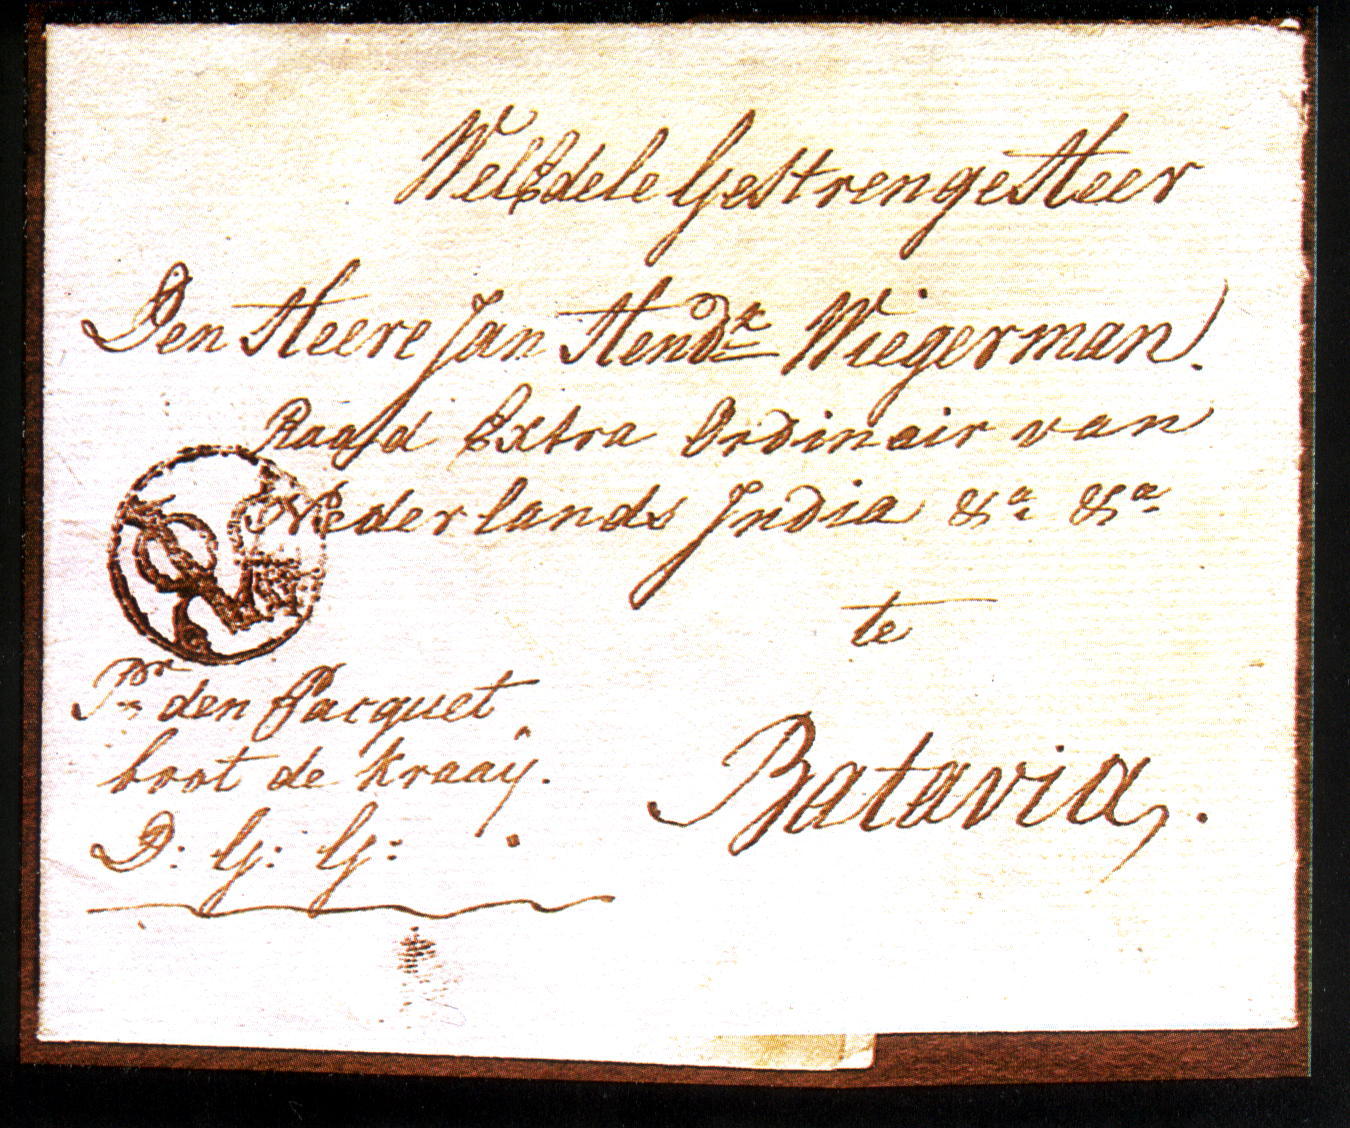 WelEdele Gestrenge Heer
Den Heere Jan Hendk Wiegerman.
Raad Extra Ordinair van
Nederlands India &a &a
te
Pr den Pacquet
boot de Kraaÿ.
Batavia.
D: G: G: